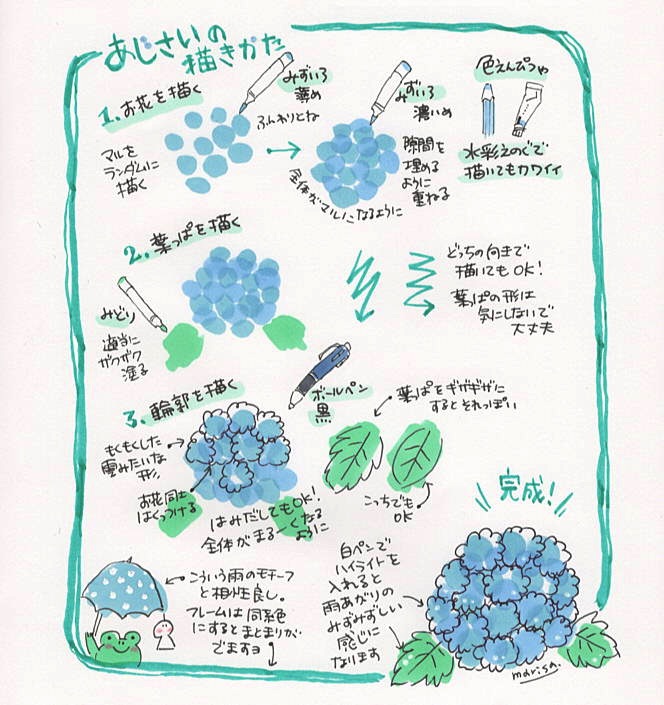 あじさいの
描きかた
1. お花を描く
マルを
ランダムに
描く
みずいろ
薄め
ふんわりとね
みずいろ
濃いめ
隙間を
埋める
ように
重ねる
全体がマルになるように
色えんぴつや
水彩えのぐで
描いてもカワイイ
2. 葉っぱを描く
みどり
適当に
ガクガク
塗る
どっちの向きで
描いてもOK!
葉っぱの形は
気にしないで
大丈夫
3. 輪郭を描く
もくもくした
雲みたいな
形
お花同士
はくっつける
はみだしてもOK!
全体がまるーくなる
ように
ボールペン
黒
葉っぱをギザギザに
するとそれっぽい
こっちでも
OK
完成!
白ペンで
ハイライトを
入れると
雨あがりの
みずみずしい
感じに
なります
こういう雨のモチーフ
と相性良し。
フレームは同系色
にするとまとまりが
でますヨ
marisa.